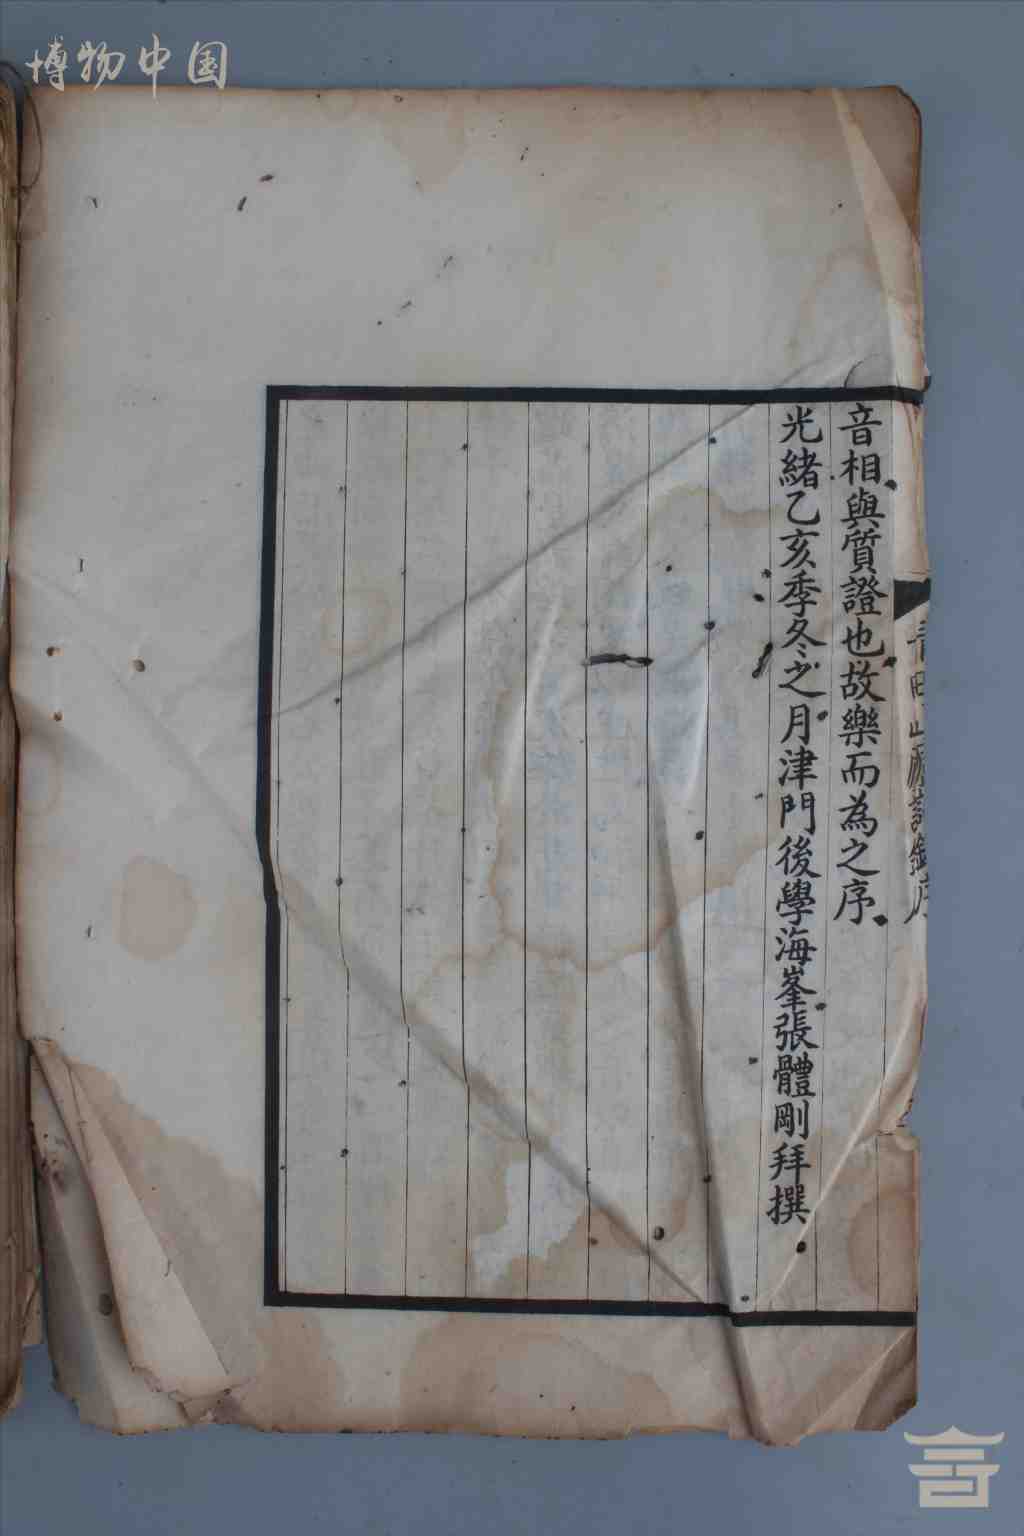 博物中国
音相與質證也故樂而為之序
光緒乙亥季冬之月津門後學海峯張體剛拜撰